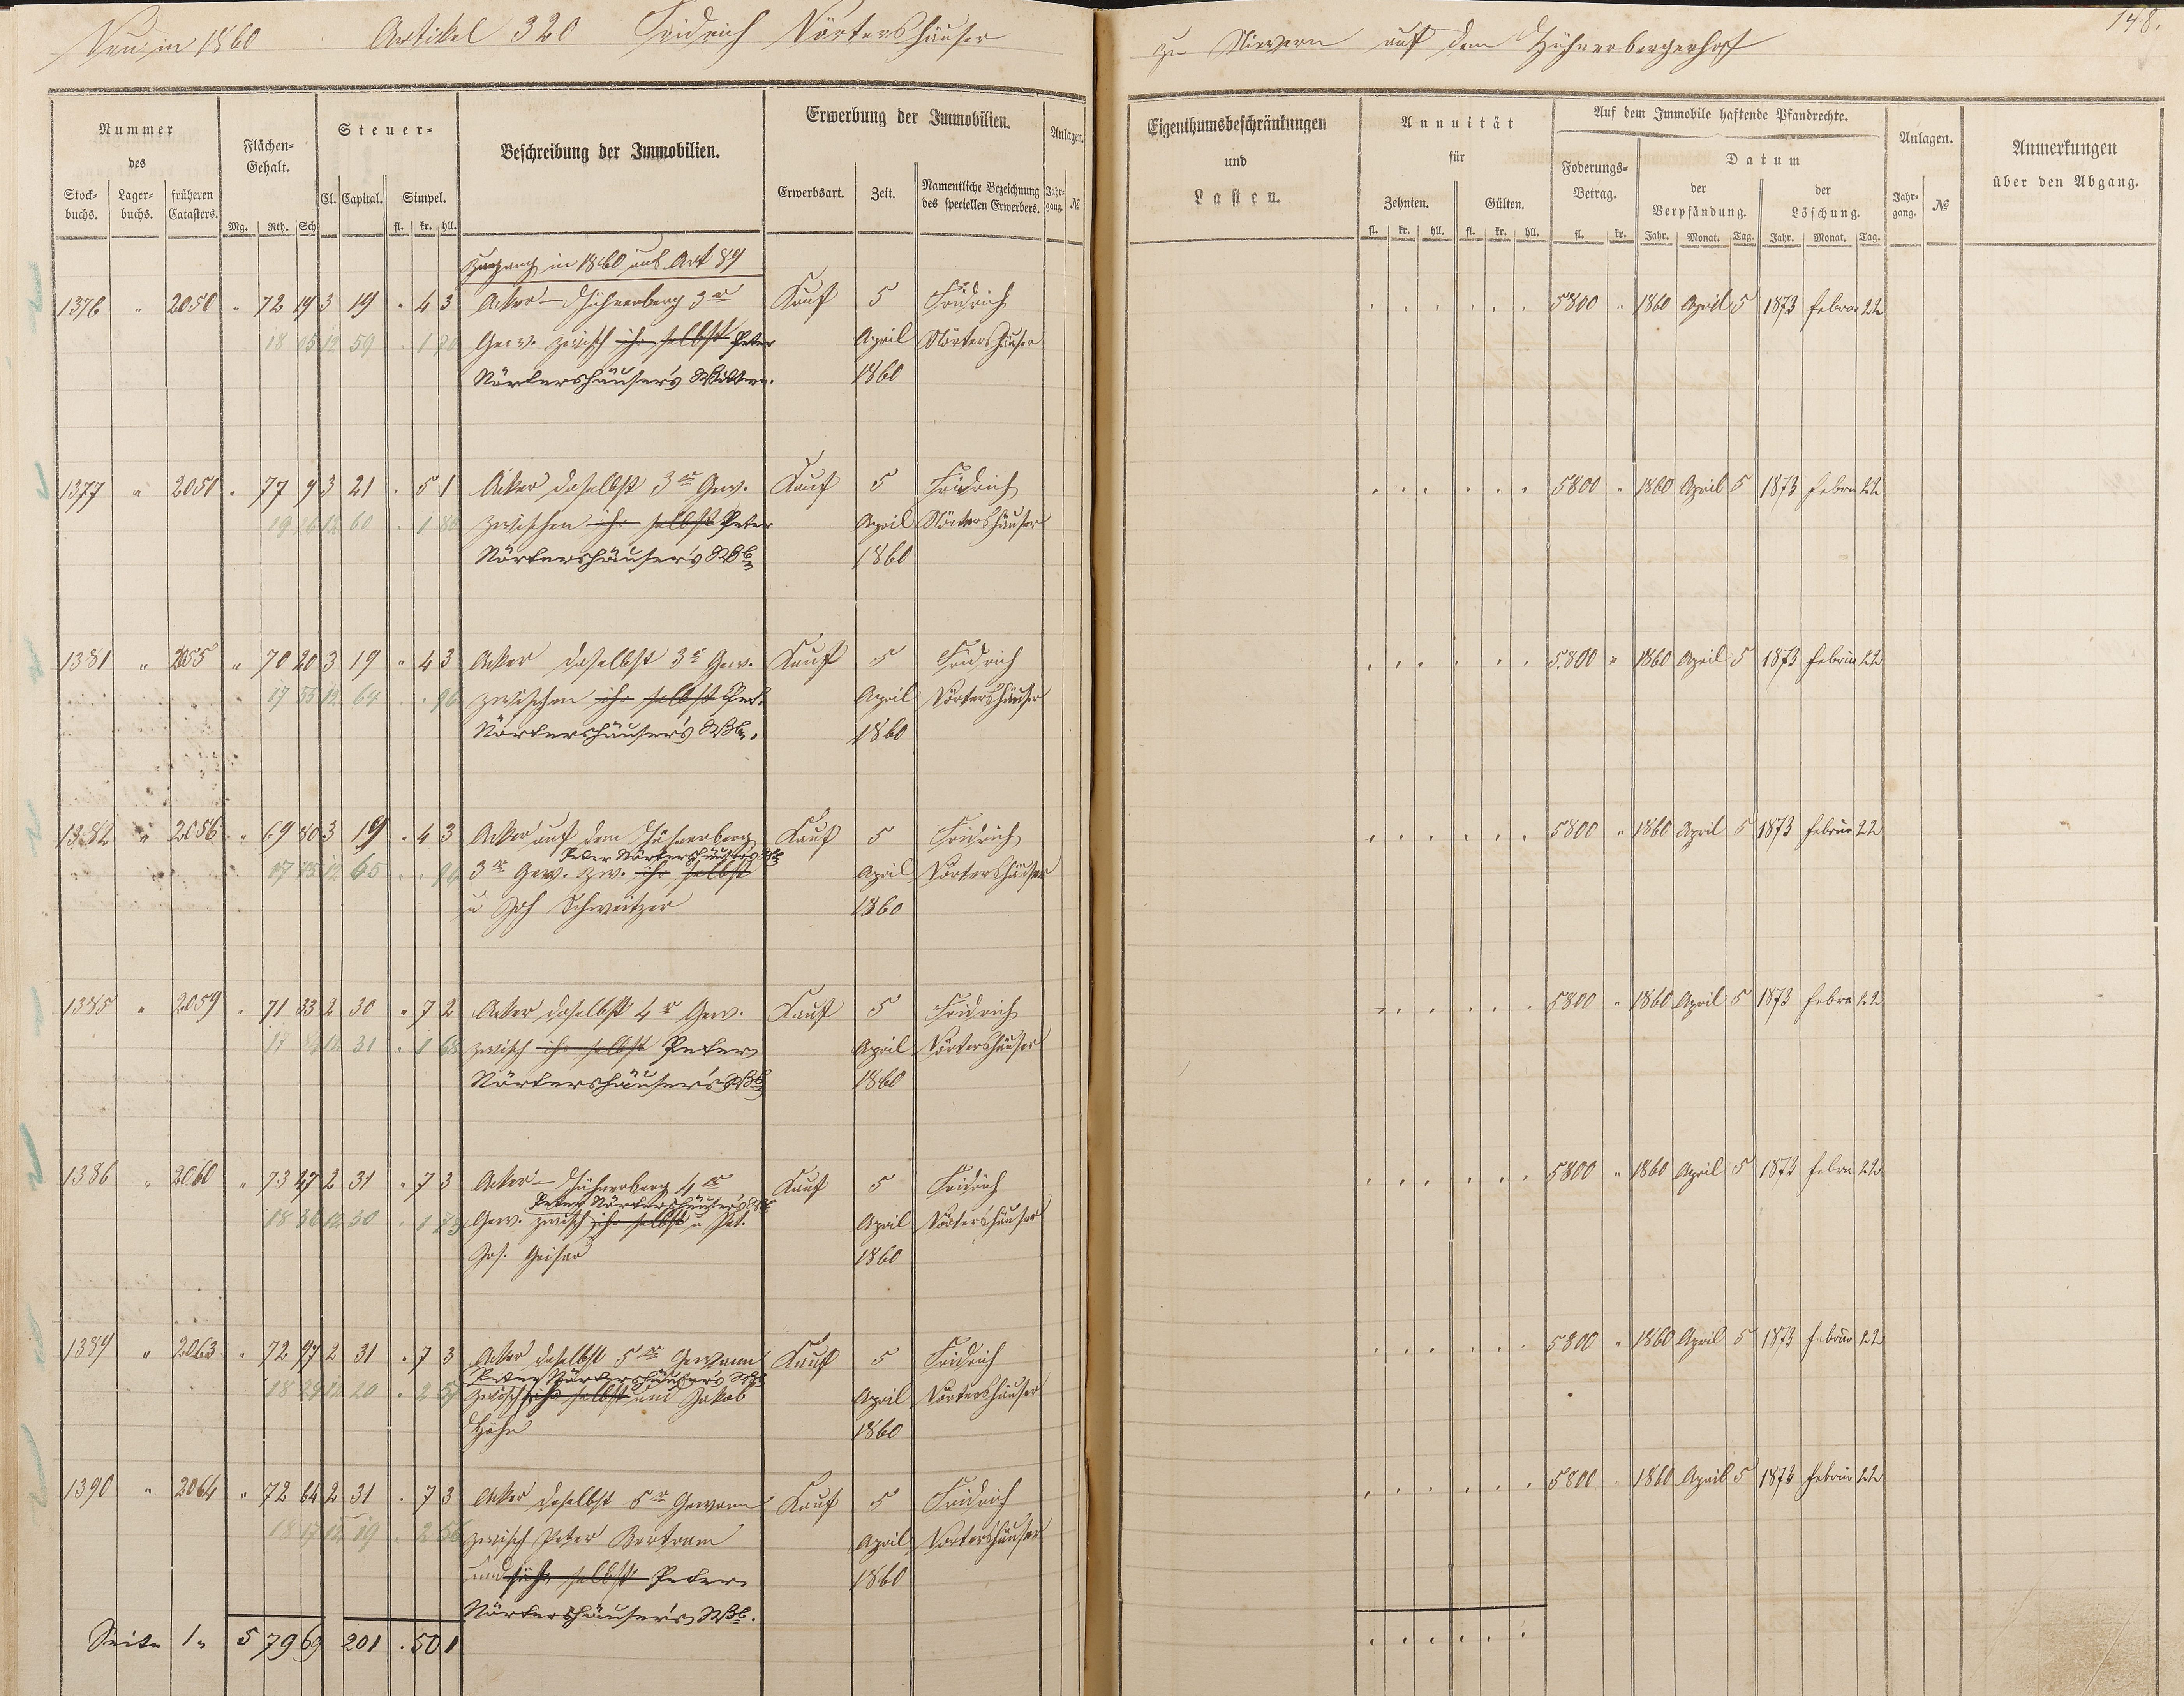 Neu in 1860 Artikel 320 Fridrich Nörtershäuser
zu Nievern auf dem Hühnerbergerhof
148.
Nummer des
Stock-buchs. Lager-buchs. früheren Catasters.
Flächen-Gehalt.
Mg. Rth. Sch
Steuer-
Cl. Capital. Simpel.
fl. kr. hll.
Beschreibung der Immobilien.
Erwerbung der Immobilien.
Erwerbsart. Zeit. Namentliche Bezeichnung des speciellen Erwerbers.
Anlagen.
Jahr-gang. №
Eigenthumsbeschränkungen und Lasten.
Annuität für
Zehnten. Gülten.
fl. kr. hll. fl. kr. hll.
Auf dem Immobile haftende Pfandrechte.
Foderungs-Betrag.
fl. kr.
Datum
der Verpfändung. der Löschung.
Jahr. Monat. Tag. Jahr. Monat. Tag.
Anlagen.
Jahr-gang. №
Anmerkungen über den Abgang.
Zugang in 1860 aus Art 89
1376 " 2050 " 72 19 3 19 . 4 3 Acker Hühnerberg 3r Kauf 5 Fridrich 5800 " 1860 April 5 1873 Februar 22
Gew. zwisch ihr selbst Peter April Nörtershäuser
Nörtershäuser's Wittwe. 1860
1377 " 2051 " 77 9 3 21 . 5 1 Acker daselbst 3r Gew. Kauf 5 Fridrich 5800 " 1860 April 5 1873 Febru 22
60
zwischen ihr selbst Peter April Nörtershäuser
Nörtershäuser's Wb 1860
1381 " 2055 " 70 20 3 19 " 4 3 Acker daselbst 3r Gew. Kauf 5 Fridrich 5800 " 1860 April 5 1873 Februar 22
17 55 12 64 . 96 zwischen ihr selbst Pet. April Nörtershäuser
Nörtershäuser's Wb. 1860
1382 " 2056 " 69 80 3 19 . 4 3 Acker auf dem Hühnerberg Kauf 5 Fridrich 5800 " 1860 April 5 1873 Februar 22
Peter Nörtershäuser's Wb
65 3r Gew. zw. ihr selbst April Nörtershäuser
u Joh Schweitzer 1860
1385 " 2059 " 71 33 2 30 " 7 2 Acker daselbst 4r Gew. Kauf 5 Fridrich 5800 " 1860 April 5 1873 Febru 22
31 . 1 68 zwisch ihr selbst Peter April Nörtershäuser
Nörtershäuser's Wb 1860
1386 " 2060 " 73 47 2 31 " 7 3 Acker Hühnerberg 4r Kauf 5 Fridrich 5800 " 1860 April 5 1873 Febru 22
Peter Nörtershäuser's Wb
18 36 12 30 . 1 73 Gew. zwisch ihr selbst u Pet. April Nörtershäuser
Jos. Geiser 1860
1389 " 2063 " 72 97 2 31 " 7 3 Acker daselbst 5r Gewann Kauf 5 Fridrich 5800 " 1860 April 5 1873 Februar 22
Peter Nörtershäuser's Wb
18 24 12 20 . 2 57 zwisch ihr selbst und Jakob April Nörtershäuser
Höhn 1860
1390 " 2064 " 72 64 2 31 . 7 3 Acker daselbst 5r Gewann Kauf 5 Fridrich 5800 " 1860 April 5 1873 Februar 22
18 17 12 19 . 2 56 zwisch Peter Bertram April Nörtershäuser
und ihr selbst Peter 1860
Nörtershäuser's Wb.
Seite 1. 5 79 69 201 . 50 1